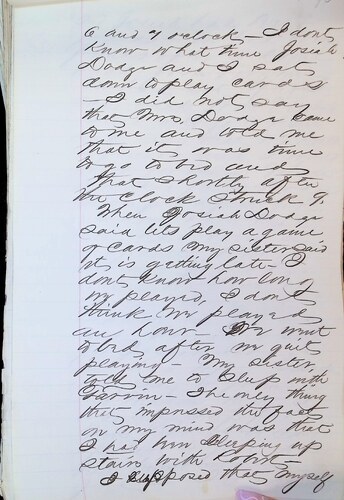 6 and 7 oclock — I dont
know what time Josiah
Dodge and I sat
down to play cards
— I did not say
that Mrs. Dodge came
to me and told me
that it was time
to go to bed and
that shortly after
the clock struck 9.
When Josiah Dodge
said lets play a game
of cards my sister said
it is getting late I
dont know how long
we played, I dont
think we played
an hour — We went
to bed after we quit
playing — My sister
told me to sleep with
The only thing
that impressed the fact
on my mind was that
I had been sleeping up
stairs with
I supposed that myself